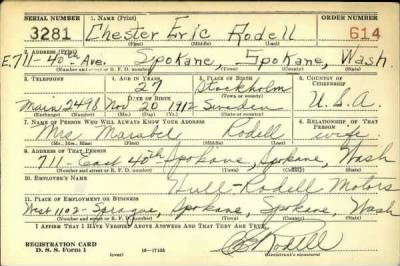 SERIAL NUMBER 1. NAME (Print) ORDER NUMBER
3281 Chester Eric Rodell 614
(First) (Middle) (Last)
2. ADDRESS (Print)
E,711-40th Ave. Spokane, Spokane, Wash.
(Number and street or R. F. D. number) (Town) (County) (State)
3. TELEPHONE 4. AGE IN YEARS 5. PLACE OF BIRTH 6. COUNTRY OF CITIZENSHIP
27 Stockholm
DATE OF BIRTH
Main 2498 Nov 20 1912 Sweden U.S.A.
(Exchange) (Number) (Mo.) (Day) (Yr.) (State or country)
7. NAME OF PERSON WHO WILL ALWAYS KNOW YOUR ADDRESS 8. RELATIONSHIP OF THAT PERSON
Mrs Marabel Rodell wife
(Mr., Mrs., Miss) (First) (Middle) (Last)
9. ADDRESS OF THAT PERSON
711-East 40th Spokane, Spokane, Wash
(Number and street or R. F. D. number) (Town) (County) (State)
10. EMPLOYER'S NAME
Hull-Rodell Motors
11. PLACE OF EMPLOYMENT OR BUSINESS
West 1102-Sprague, Spokane, Spokane, Wash
(Number and street or R. F. D. number) (Town) (County) (State)
I AFFIRM THAT I HAVE VERIFIED ABOVE ANSWERS AND THAT THEY ARE TRUE.
REGISTRATION CARD
D. S. S. Form 1 (over) 16-17105 Rodell
(Registrant's signature)